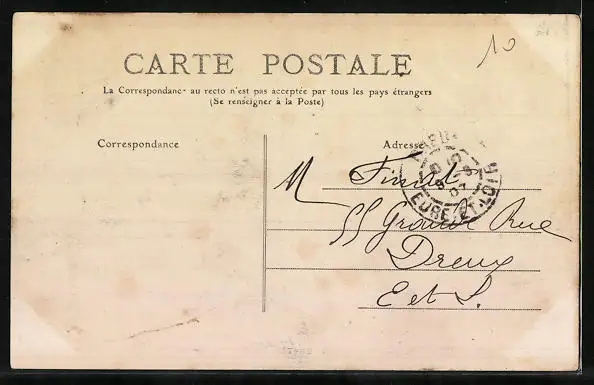 10
CARTE POSTALE
La Correspondance au recto n'est pas acceptée par tous les pays étrangers
(Se renseigner à la Poste)
Correspondance
Adresse
M
55 Grande Rue
Dreux
E et L.
EURE-ET-LOIR
07